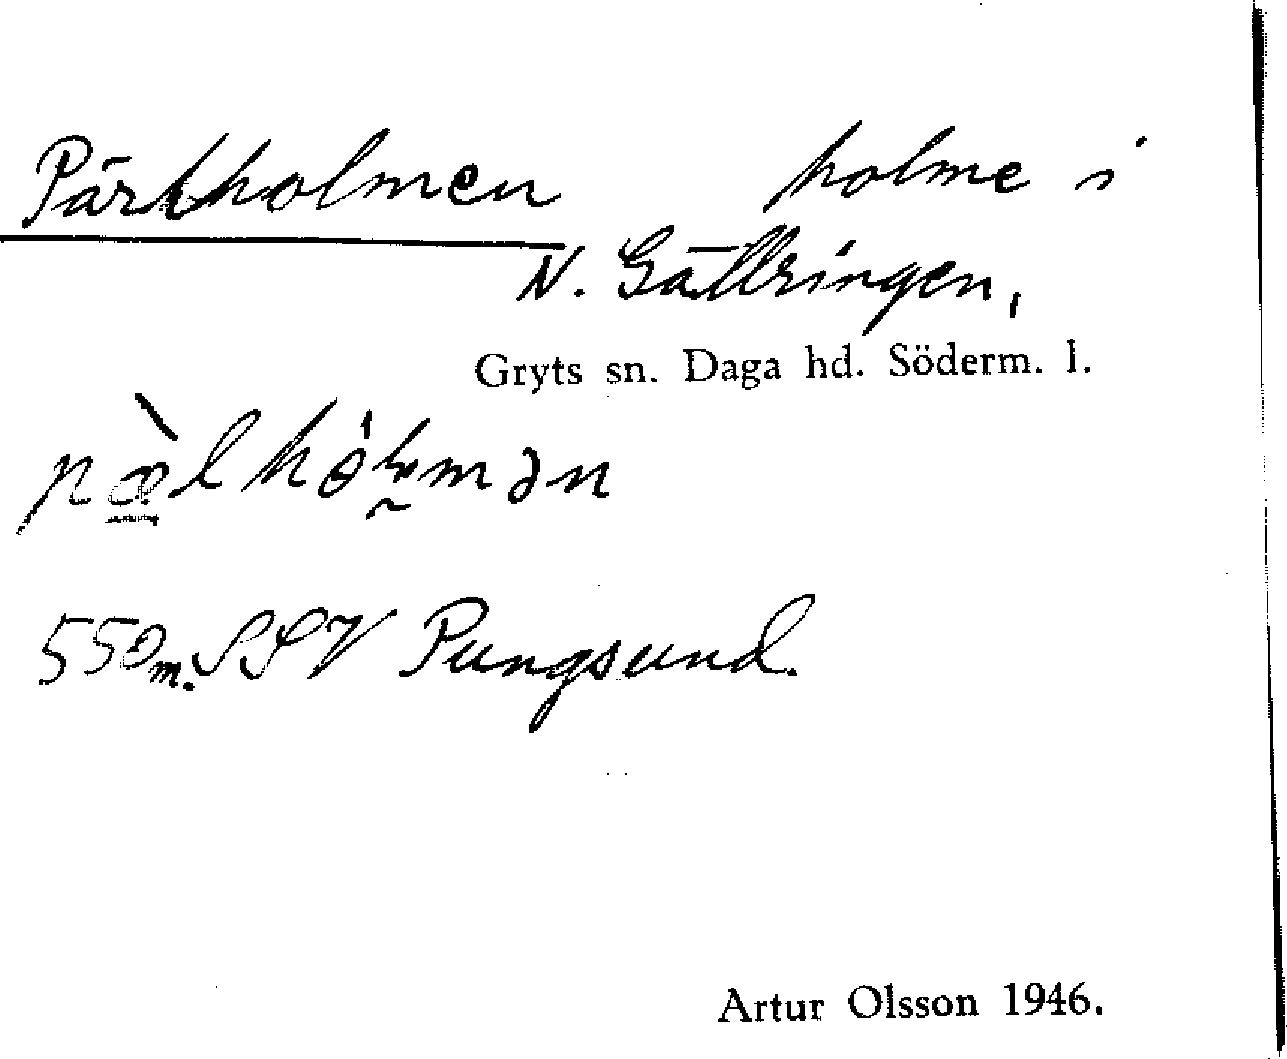 Pärlholmen holme i
N. Gällringen,
Gryts sn. Daga hd. Söderm. l.
550 m. SSV Pungsund.
Artur Olsson 1946.